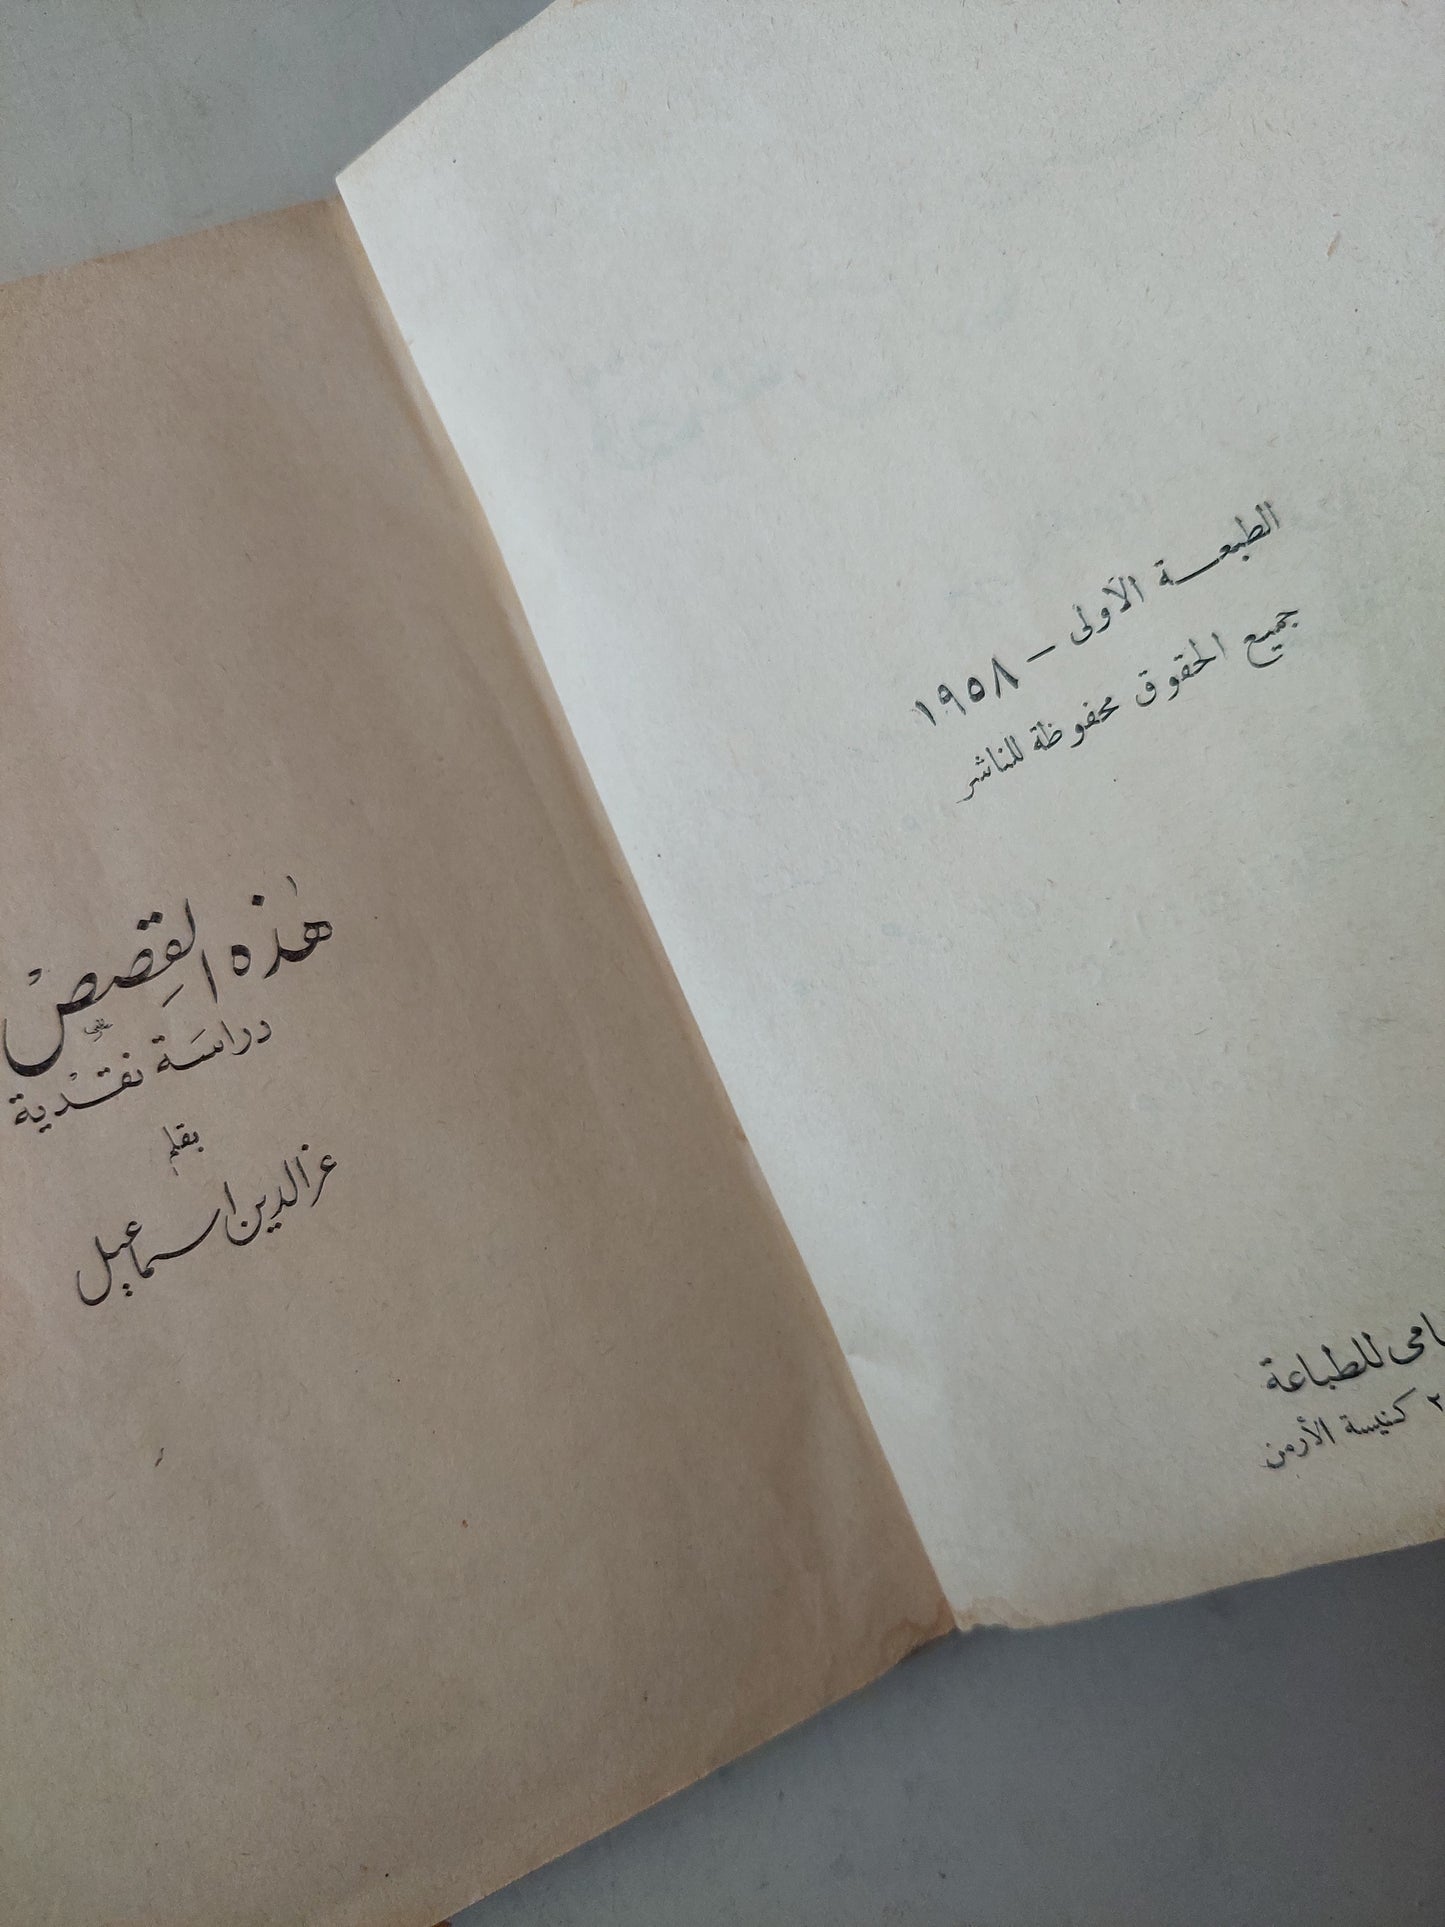 الطبعة الأولى – ١٩٥٨
جميع الحقوق محفوظة للناشر
للطباعة
كنيسة الأرمن
هذه القصص
دراسة نقدية
بقلم
عز الدين اسماعيل